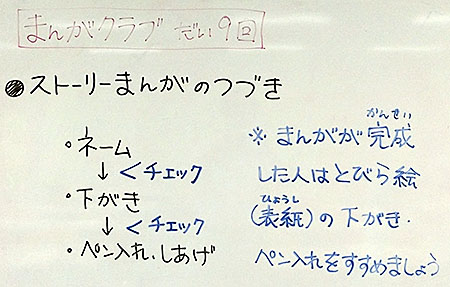 まんがクラブ だい9回
●ストーリーまんがのつづき
・ネーム
↓ <チェック
・下がき
↓ <チェック
・ペン入れ、しあげ
※ まんがが完成
かんせい
した人はとびら絵
ひょうし
(表紙)の下がき・
ペン入れをすすめましょう